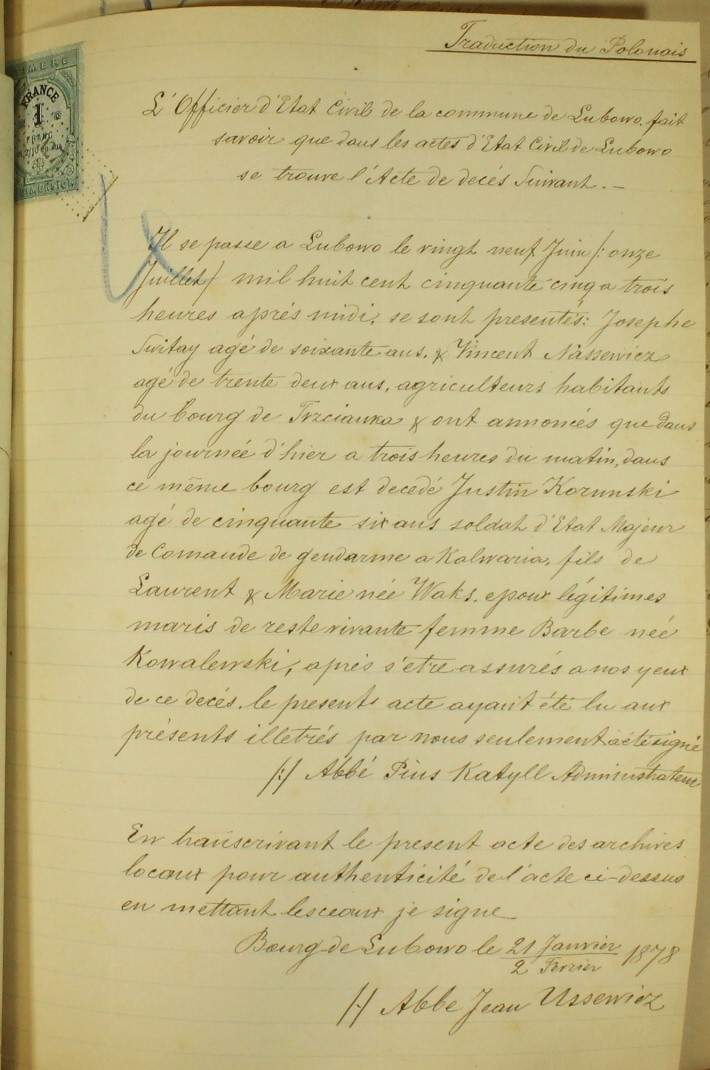 Traduction du Polonais
FRANCE
1
L'Officier d'Etat Civil de la commune de Lubowo, fait
savoir que dans les actes d'Etat Civil de Lubowo
se trouve l'Acte de decés Suivant. –
Il se passe a Lubowo le vingt neuf Juin /: onze
Juillet/ mil huit cent cinquante cinq a trois
heures aprés midi, se sont presentes: Josephe
Switay agé de soixante ans, & Vincent Nassewicz
agé de trente deux ans, agriculteurs habitants
du bourg de Trzcianka & ont annoncés que dans
la journée d'hier a trois heures du matin, dans
ce même bourg est decedé Justin Korunski
agé de cinquante six ans soldat d'Etat Majeur
de Comande de gendarme a Kalwaria, fils de
Laurent & Marie née Waks, epoux légitimes
maris de reste vivante femme Barbe neé
Kowalewski, aprés s'etre assurés a nos yeux
de ce decés. le presents acte ayant été lu aux
présents illetrés par nous seulement a été signé
/:/ Abbé Pius Katyll Administrateur
En transcrivant le present acte des archives
locaux pour authenticité de l'acte ci-dessus
en mettant les ceaux je signe
Bourg de Lubowo le 21 Janvier 1878
2 Fevrier
/-/ Abbe Jean Ussewicz